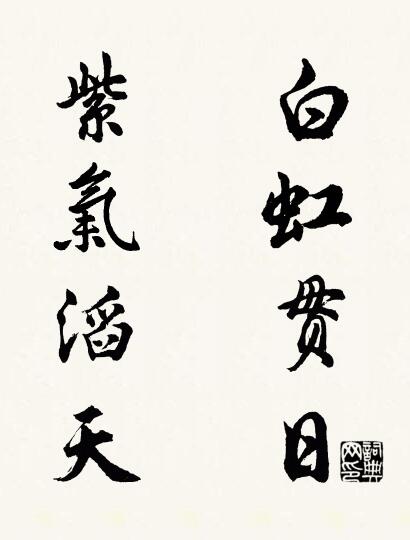 白虹贯日
紫氣滔天
詞典网印